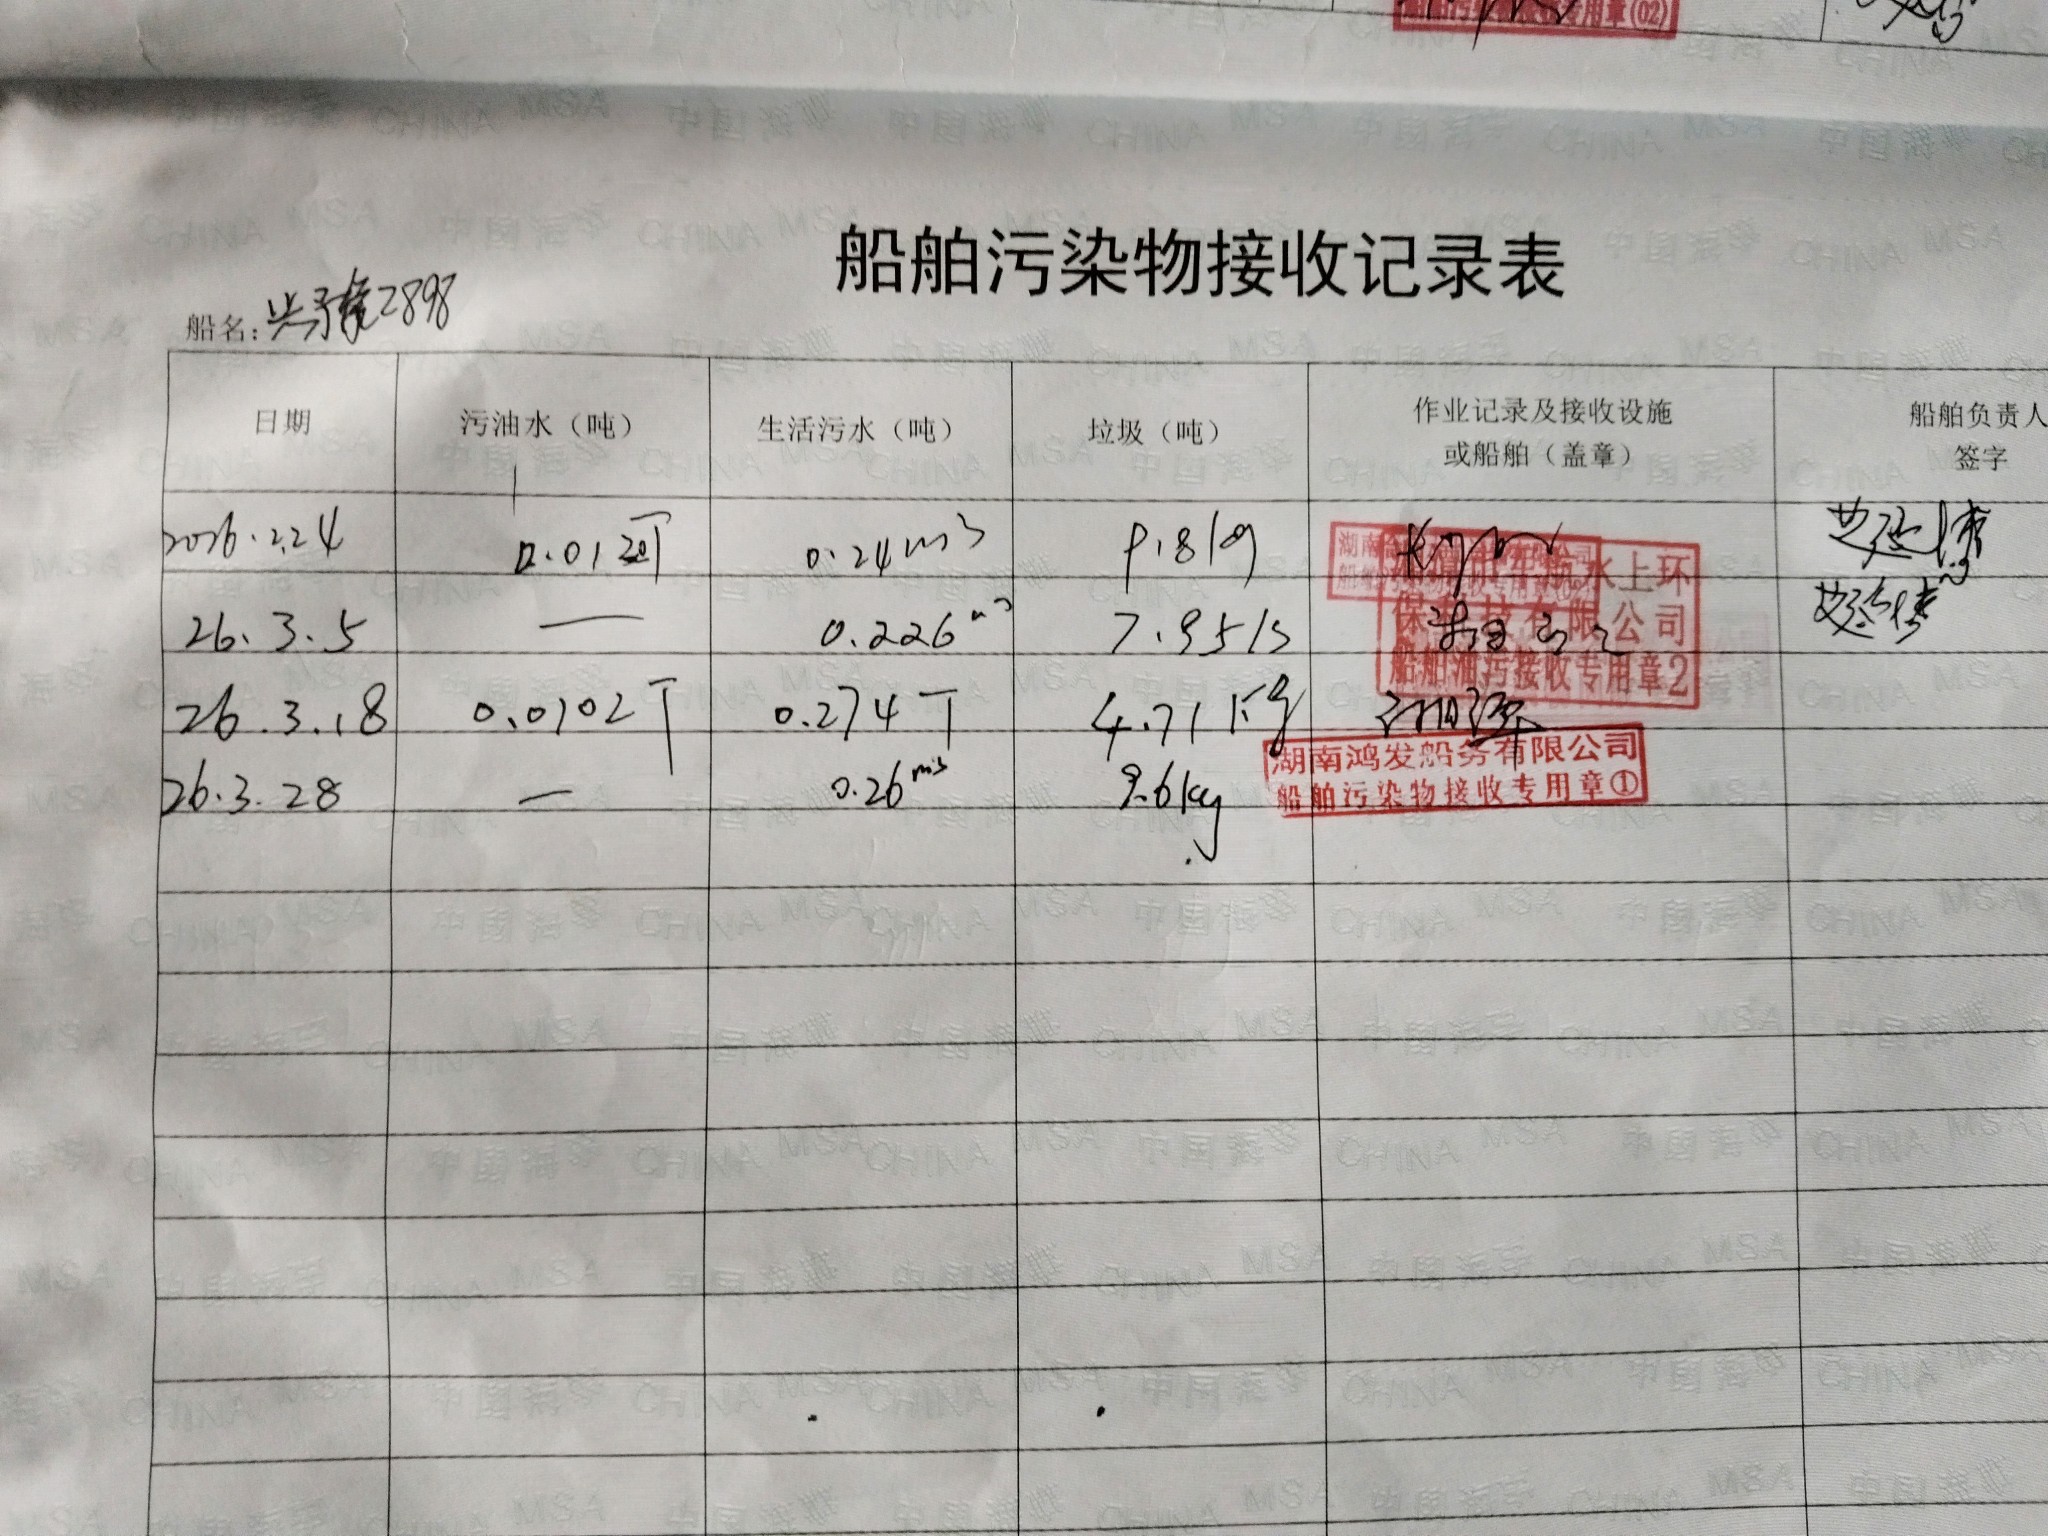 专用章(02)
船舶污染物接收记录表
船名: 2898
日期 污油水（吨） 生活污水（吨） 垃圾（吨） 作业记录及接收设施或船舶（盖章） 船舶负责人签字
2026.2.24 0.24m³ 9.8kg
26.3.5 — 0.226m³ 7.95kg
水上环
保科技有限公司
船舶油污接收专用章2
26.3.18 0.0102T 0.274T 4.71kg
26.3.28 — 0.26m³ 9.6kg
湖南鸿发船务有限公司
船舶污染物接收专用章①
中国海事 CHINA MSA